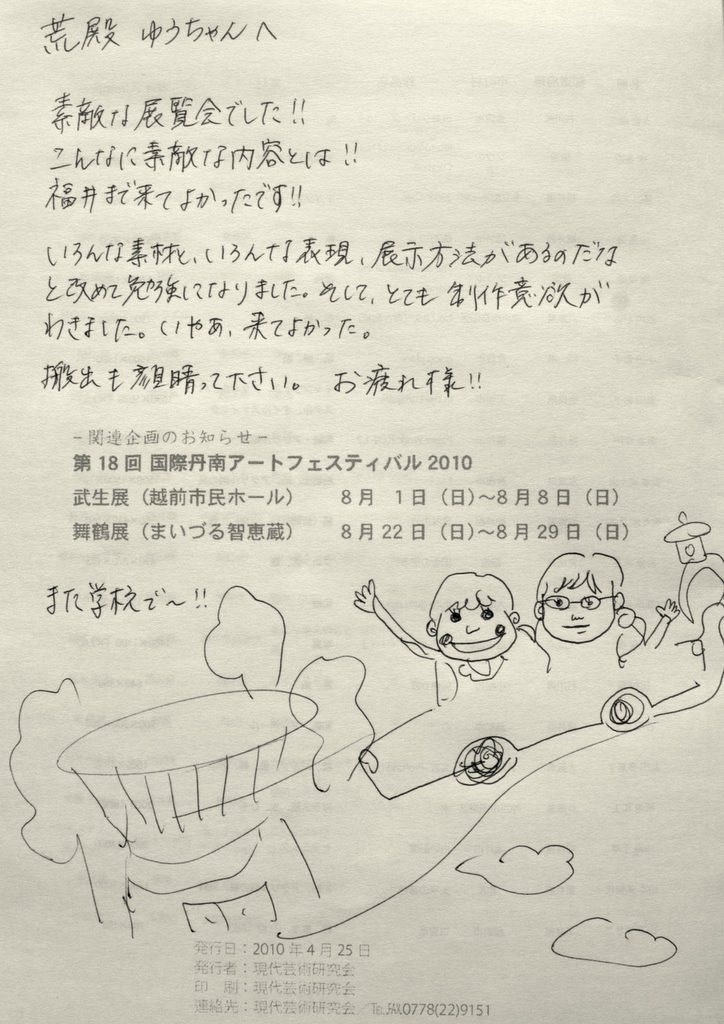 荒殿 ゆうちゃんへ
素敵な展覧会でした!!
こんなに素敵な内容とは!!
福井まで来てよかったです!!
いろんな素材と、いろんな表現、展示方法があるのだな
と改めて勉強になりました。そして、とても制作意欲が
わきました。いやあ、来てよかった。
搬出も顔晴って下さい。 お疲れ様!!
－関連企画のお知らせ－
第 18 回 国際丹南アートフェスティバル 2010
武生展（越前市民ホール） 8 月 1 日（日）～8 月 8 日（日）
舞鶴展（まいづる智恵蔵） 8 月 22 日（日）～8 月 29 日（日）
また学校で～!!
発行日：2010 年 4 月 25 日
発行者：現代芸術研究会
印 刷：現代芸術研究会
連絡先：現代芸術研究会／TEL.FAX.0778(22)9151